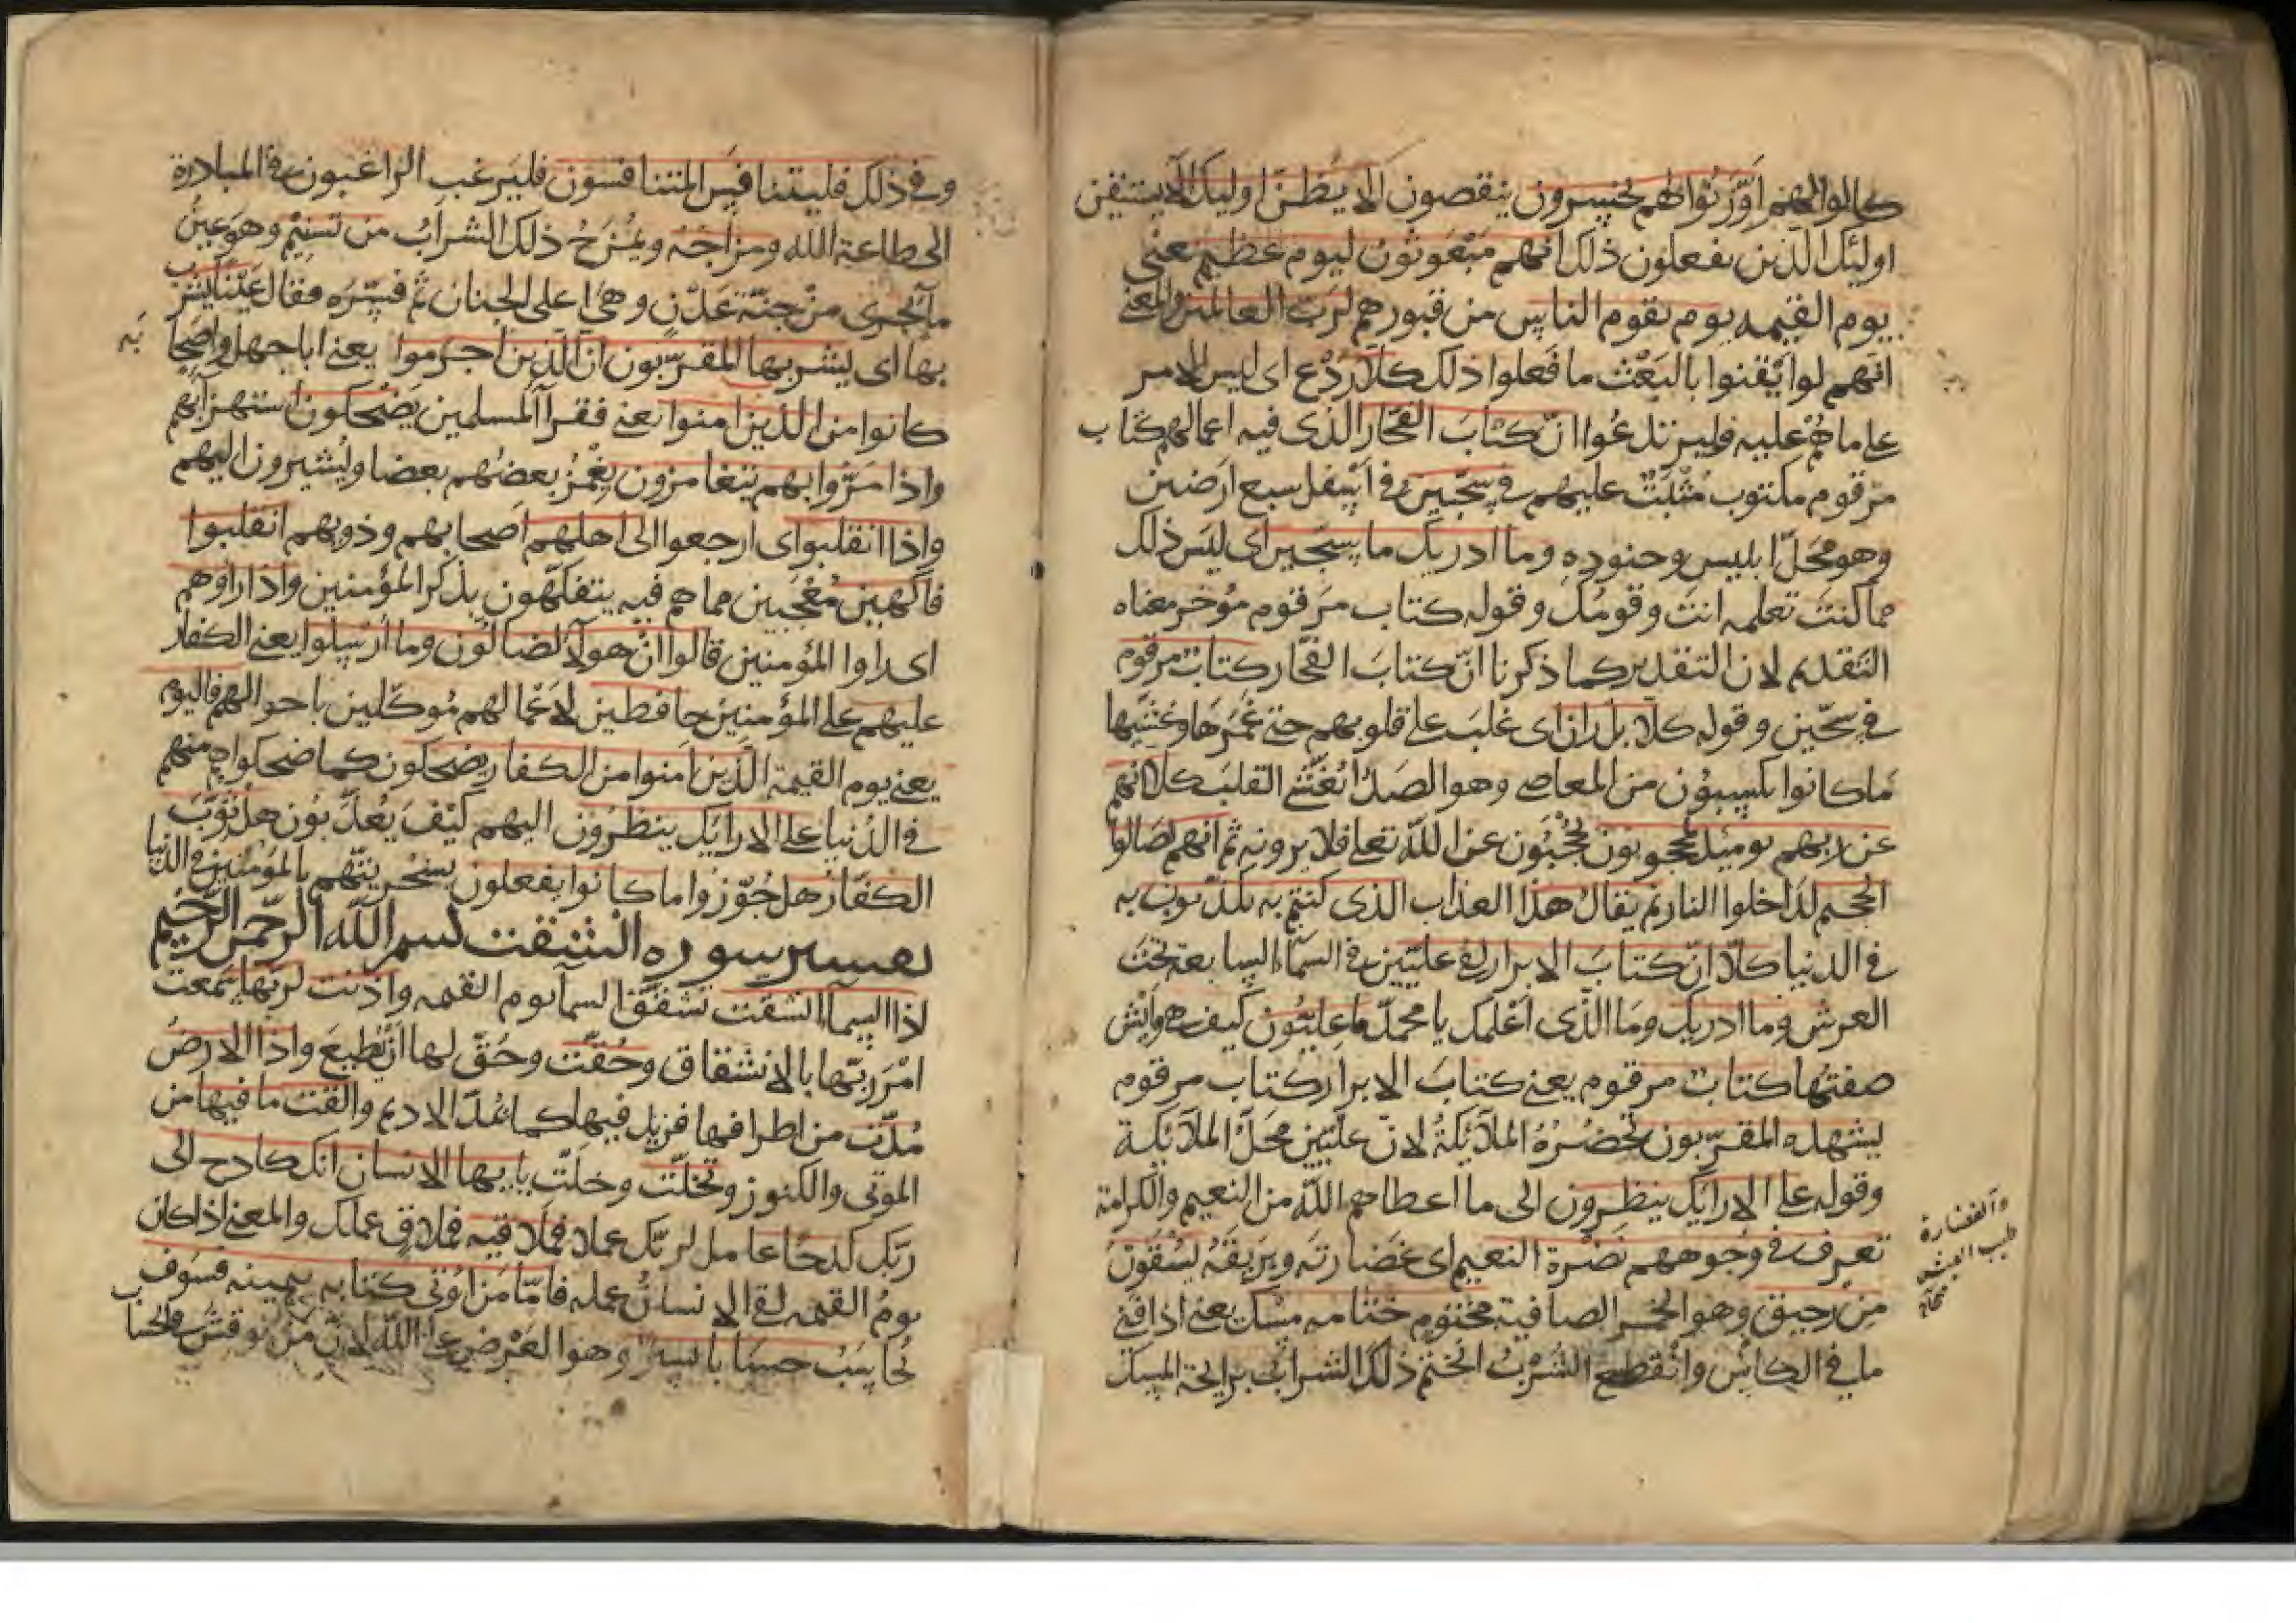 كالوا لهم او وزنوا لهم يخسرون ينقصون الا يظن اوليك الا يستيقن
اولئك الذين يفعلون ذلك انهم مبعوثون ليوم عظيم يعنى
يوم القيمه يوم يقوم الناس من قبورهم لرب العالمين والمعنى
انهم لو ايقنوا بالبعث ما فعلوا ذلك كلا ردع اى ليس الامر
على ما هم عليه فليرتدعوا ان كتاب الفجار الذى فيه اعمالهم كتاب
مرقوم مكتوب مثبت عليهم فى سجين فى اسفل سبع ارضين
وهو محل ابليس وجنوده وما ادريك ما سجين اى ليس ذلك
مما كنت تعلمه انت وقومك وقوله كتاب مرقوم مؤخر معناه
التقديم لان التقدير كما ذكرنا ان كتاب الفجار كتاب مرقوم
فى سجين وقوله كلا بل ران اى غلب على قلوبهم حتى غمرها وغشيها
ما كانوا يكسبون من المعاصى وهو الصدأ يغشى القلب كلا انهم
عن ربهم يوميذ لمحجوبون يحجبون عن الله تعلى فلا يرونه ثم انهم لصالوا
الجحيم لداخلوا النار ثم يقال هذا العذاب الذى كنتم به تكذبون به
فى الدنيا كلا ان كتاب الابرار لفى عليين فى السماء السابعة تحت
العرش وما ادريك وما الذى اعلمك يا محمد ما عليون كيف هى وايش
صفتها كتاب مرقوم يعنى كتاب الابرار كتاب مرقوم
يشهده المقربون تحضره الملائكة لان عليين محل الملائكة
وقوله على الارائك ينظرون الى ما اعطاهم الله من النعيم والكرامة
تعرف فى وجوههم نضرة النعيم اى غضارته وبريقه يسقون
من رحيق وهو الخمر الصافية مختوم ختامه مسك يعنى اذا فنى
ما فى الكاس وانقطع الشرب انختم ذلك الشراب برايحة المسك
والغضارة
طيب العيش
وفى ذلك فليتنافس المتنافسون فليرغب الراغبون فى المبادرة
الى طاعة الله ومزاجه ويمزج ذلك الشراب من تسنيم وهو عين
ما تجرى من جنة عدن وهى اعلى الجنان ثم فسره فقال عينا يشرب
بها اى يشربها المقربون ان الذين اجرموا يعنى ابا جهل واصحابه
كانوا من الذين امنوا يعنى فقرآ المسلمين يضحكون استهزآ بهم
واذا مروا بهم يتغامزون يغمز بعضهم بعضا ويشيرون اليهم
واذا انقلبوا اى ارجعوا الى اهلهم اصحابهم وذويهم انقلبوا
فاكهين معجبين مما هم فيه يتفكهون بذكر المؤمنين واذا راوهم
اى راوا المؤمنين قالوا ان هولآ لضالون وما ارسلوا يعنى الكفار
عليهم على المؤمنين حافظين لاعمالهم موكلين باحوالهم فاليوم
يعنى يوم القيمة الذين امنوا من الكفار يضحكون كما ضحكوا هم منهم
فى الدنيا على الارائك ينظرون اليهم كيف يعذبون هل ثوب
الكفار هل جوزوا ما كانوا يفعلون بسخريتهم بالمؤمنين فى الدنيا
تفسير سوره انشقت بسم الله الرحمن الرحيم
اذا السمآ انشقت تشقق السمآ يوم القيمه واذنت لربها سمعت
امر ربها بالانشقاق وحقت وحق لها ان تطيع واذا الارض
مدت من اطرافها فزيد فيها كما يمد الاديم والقت ما فيها من
الموتى والكنوز وتخلت وخلت يايها الانسان انك كادح الى
ربك كدحا عامل لربك عملا فملاقيه فملاق عملك والمعنى اذا كان
يوم القيمه لقى الانسان عمله فاما من اوتى كتابه بيمينه فسوف
يحاسب حسابا يسيرا وهو العرض على الله لان من نوقش فى الحساب